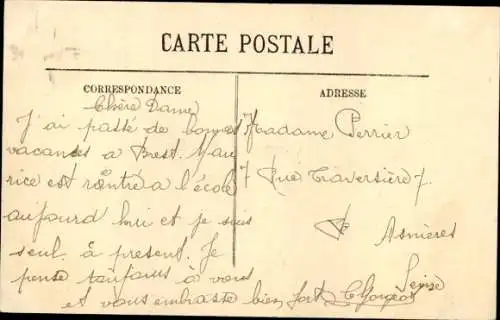 CARTE POSTALE
CORRESPONDANCE
ADRESSE
Chère Dame
J'ai passé de bonnes
vacances a Brest. Mau
rice est rentré a l'école
aujourd hui et je suis
seul. à present. Je
pense toujours à vous
et vous embrasse bien fort Georges
Madame Perrier
7 Rue Traversière 7.
Asnières
Seine